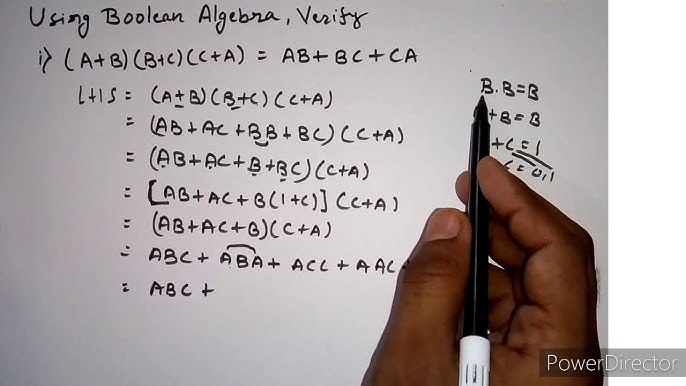 Using Boolean Algebra, Verify
i) (A+B)(B+C)(C+A) = AB+BC+CA
LHS = (A+B)(B+C)(C+A)
= (AB+AC+BB+BC)(C+A)
= (AB+AC+B+BC)(C+A)
= [AB+AC+B(1+C)](C+A)
= (AB+AC+B)(C+A)
= ABC + ABA + ACC + AAC
= ABC +
B.B=B
+B=B
+C=1
C=0,1
PowerDirector